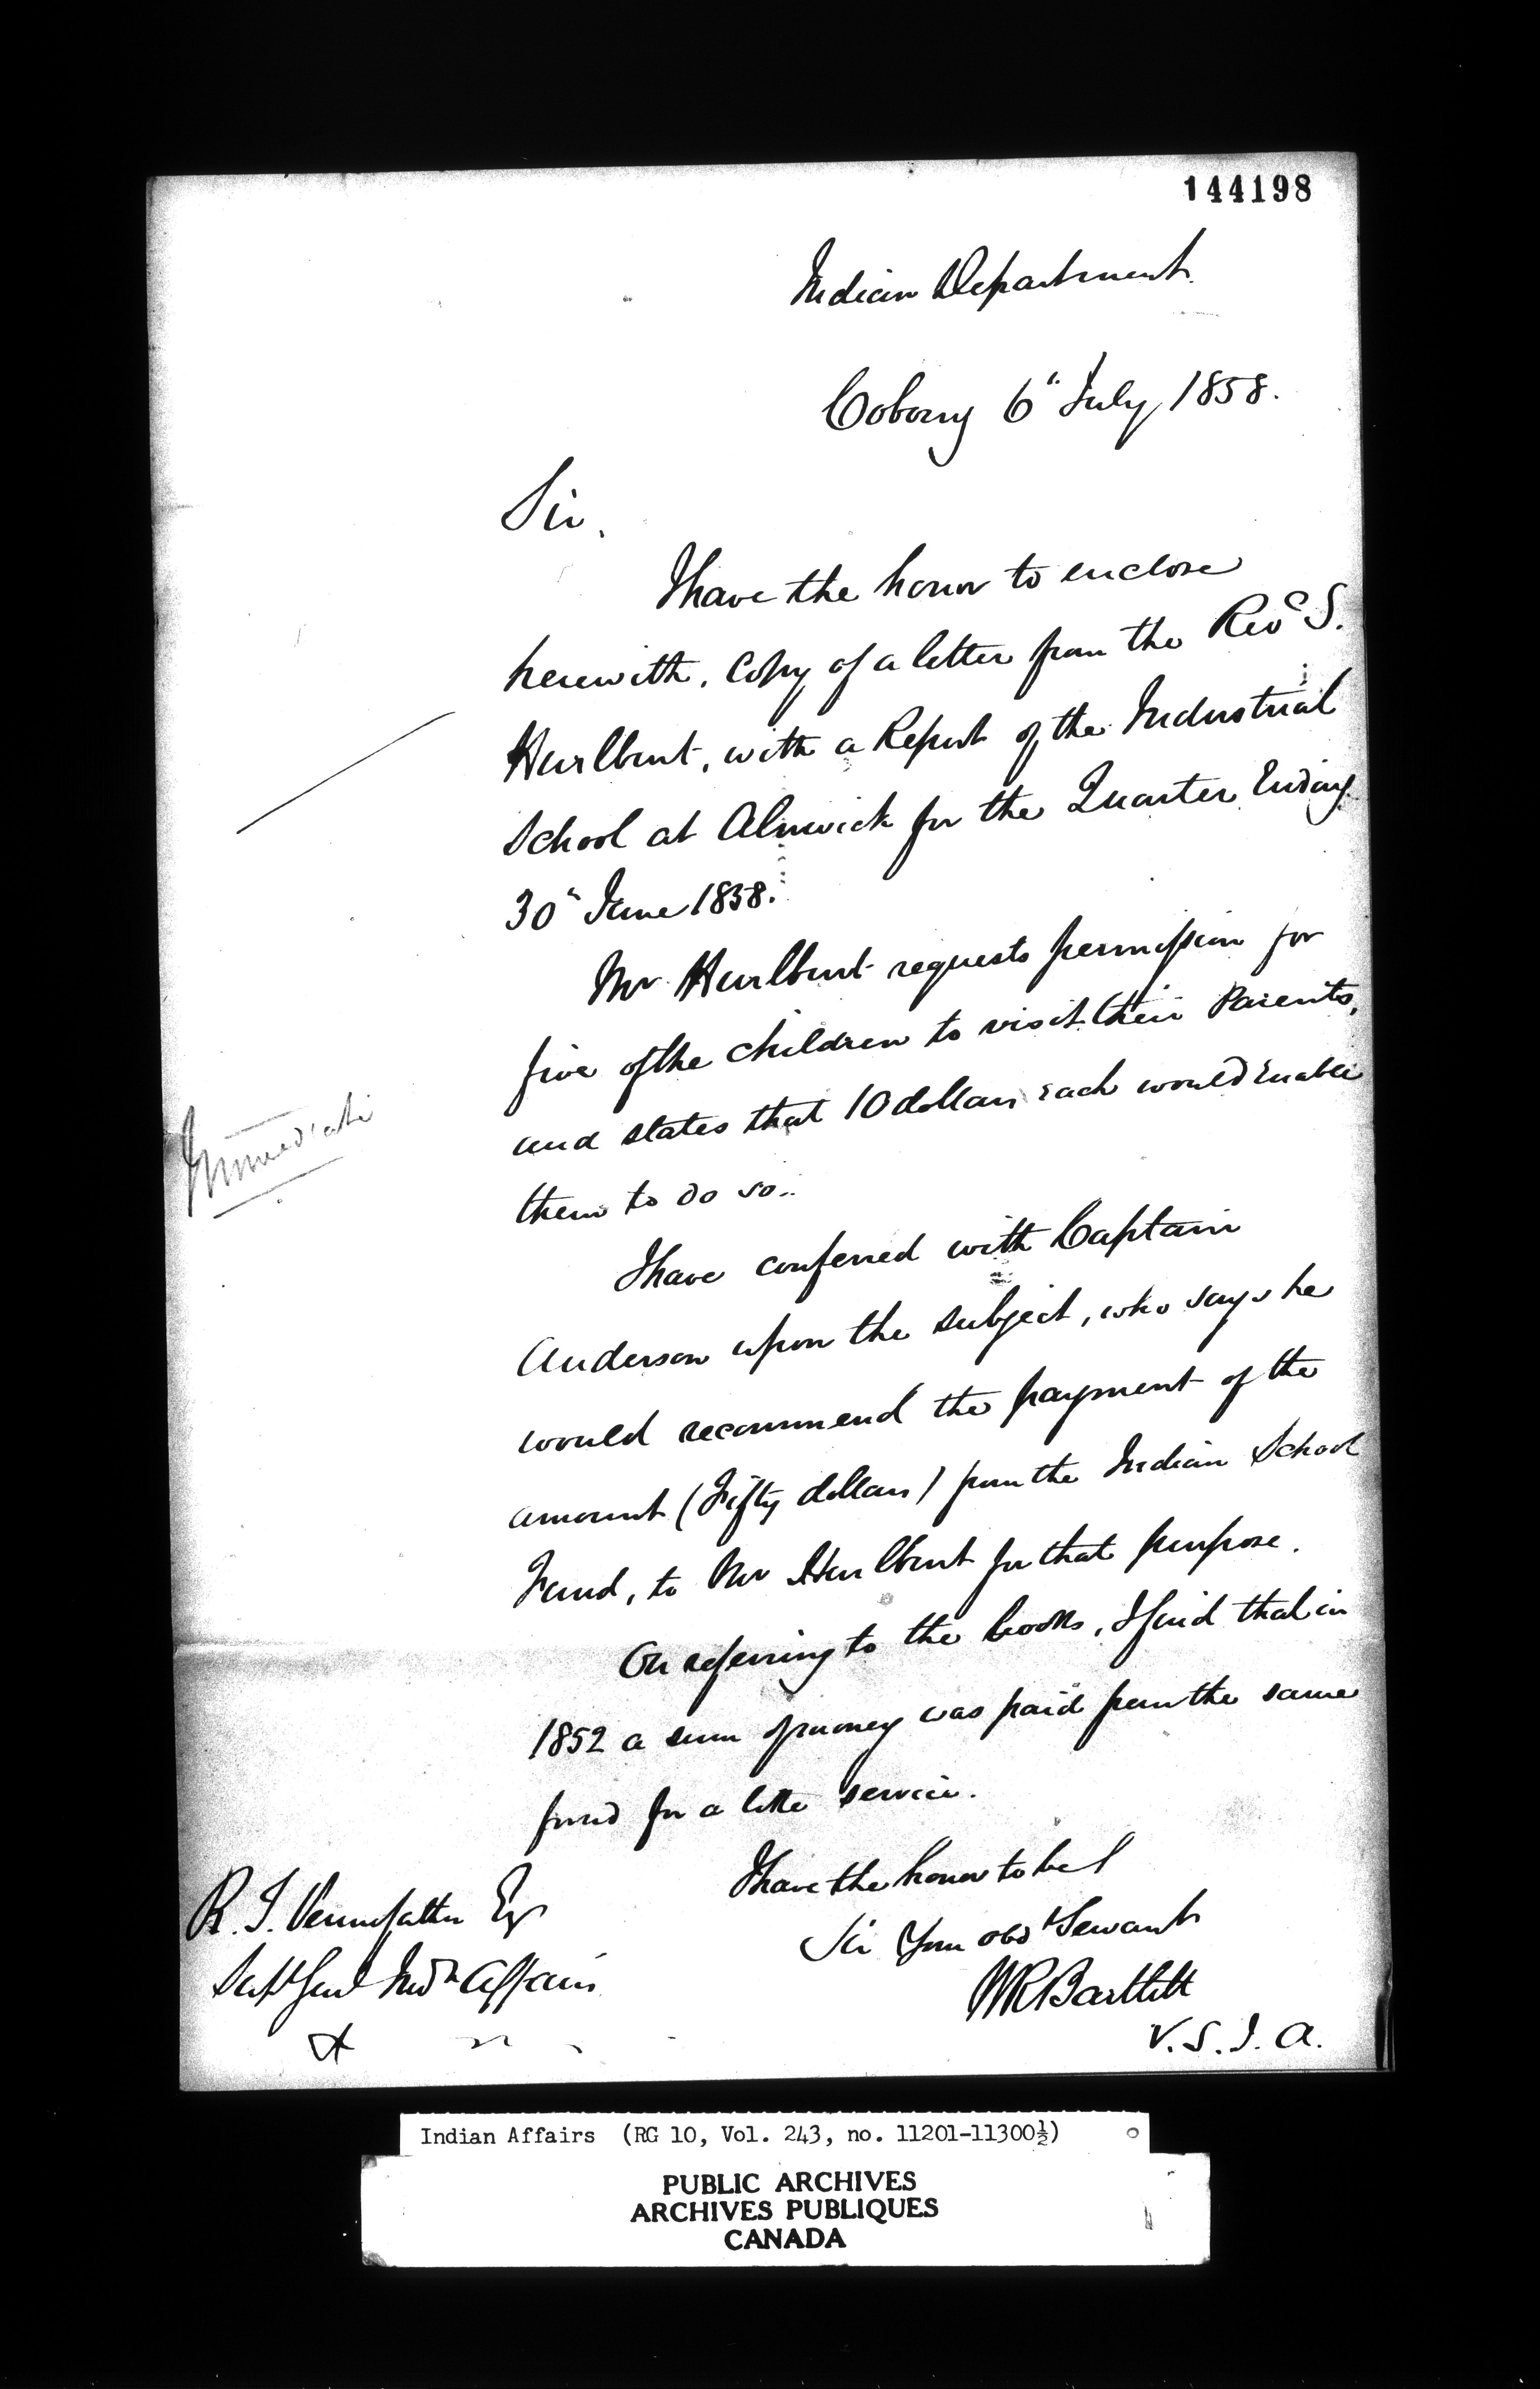 144198
Indian Department
Cobourg 6" July, 1858.
Sir,
I have the honor to enclose
herewith, Copy of a letter from the Revd S.
Hurlburt, with a Report of the Industrial
School at Alnwick for the Quarter Ending
30" June 1858.
Mr Hurlburt requests permission for
five of the children to visit their Parents,
and states that 10 dollars each would enable
them to do so..
Immediate
I have conferred with Captain
Anderson upon the subject, who says he
would recommend the payment of the
amount (Fifty dollars) from the Indian School
Fund, to Mr Hurlburt for that purpose.
On referring to the books, I find that in
1852 a sum of money was paid from the same
fund for a like service.
I have the honor to be
Sir Your obdt Servant
WRBartlett
V.S.I.A.
R. T. Pennefather Esq
Supt Genl Indn Affairs
Indian Affairs (RG 10, Vol. 243, no. 11201-11300½)
PUBLIC ARCHIVES
ARCHIVES PUBLIQUES
CANADA